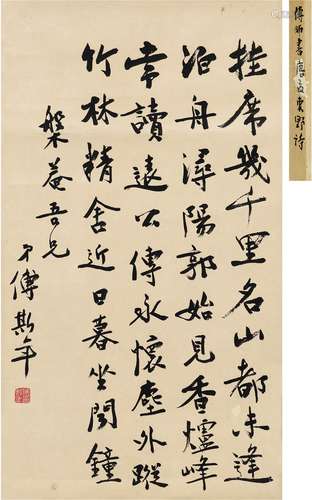 挂席幾千里名山都未逢
泊舟潯陽郭始見香爐峰
常讀遠公傳永懷塵外蹤
竹林精舍近日暮坐聞鐘
槃菴吾兄
弟傅斯年
書唐孟東野詩